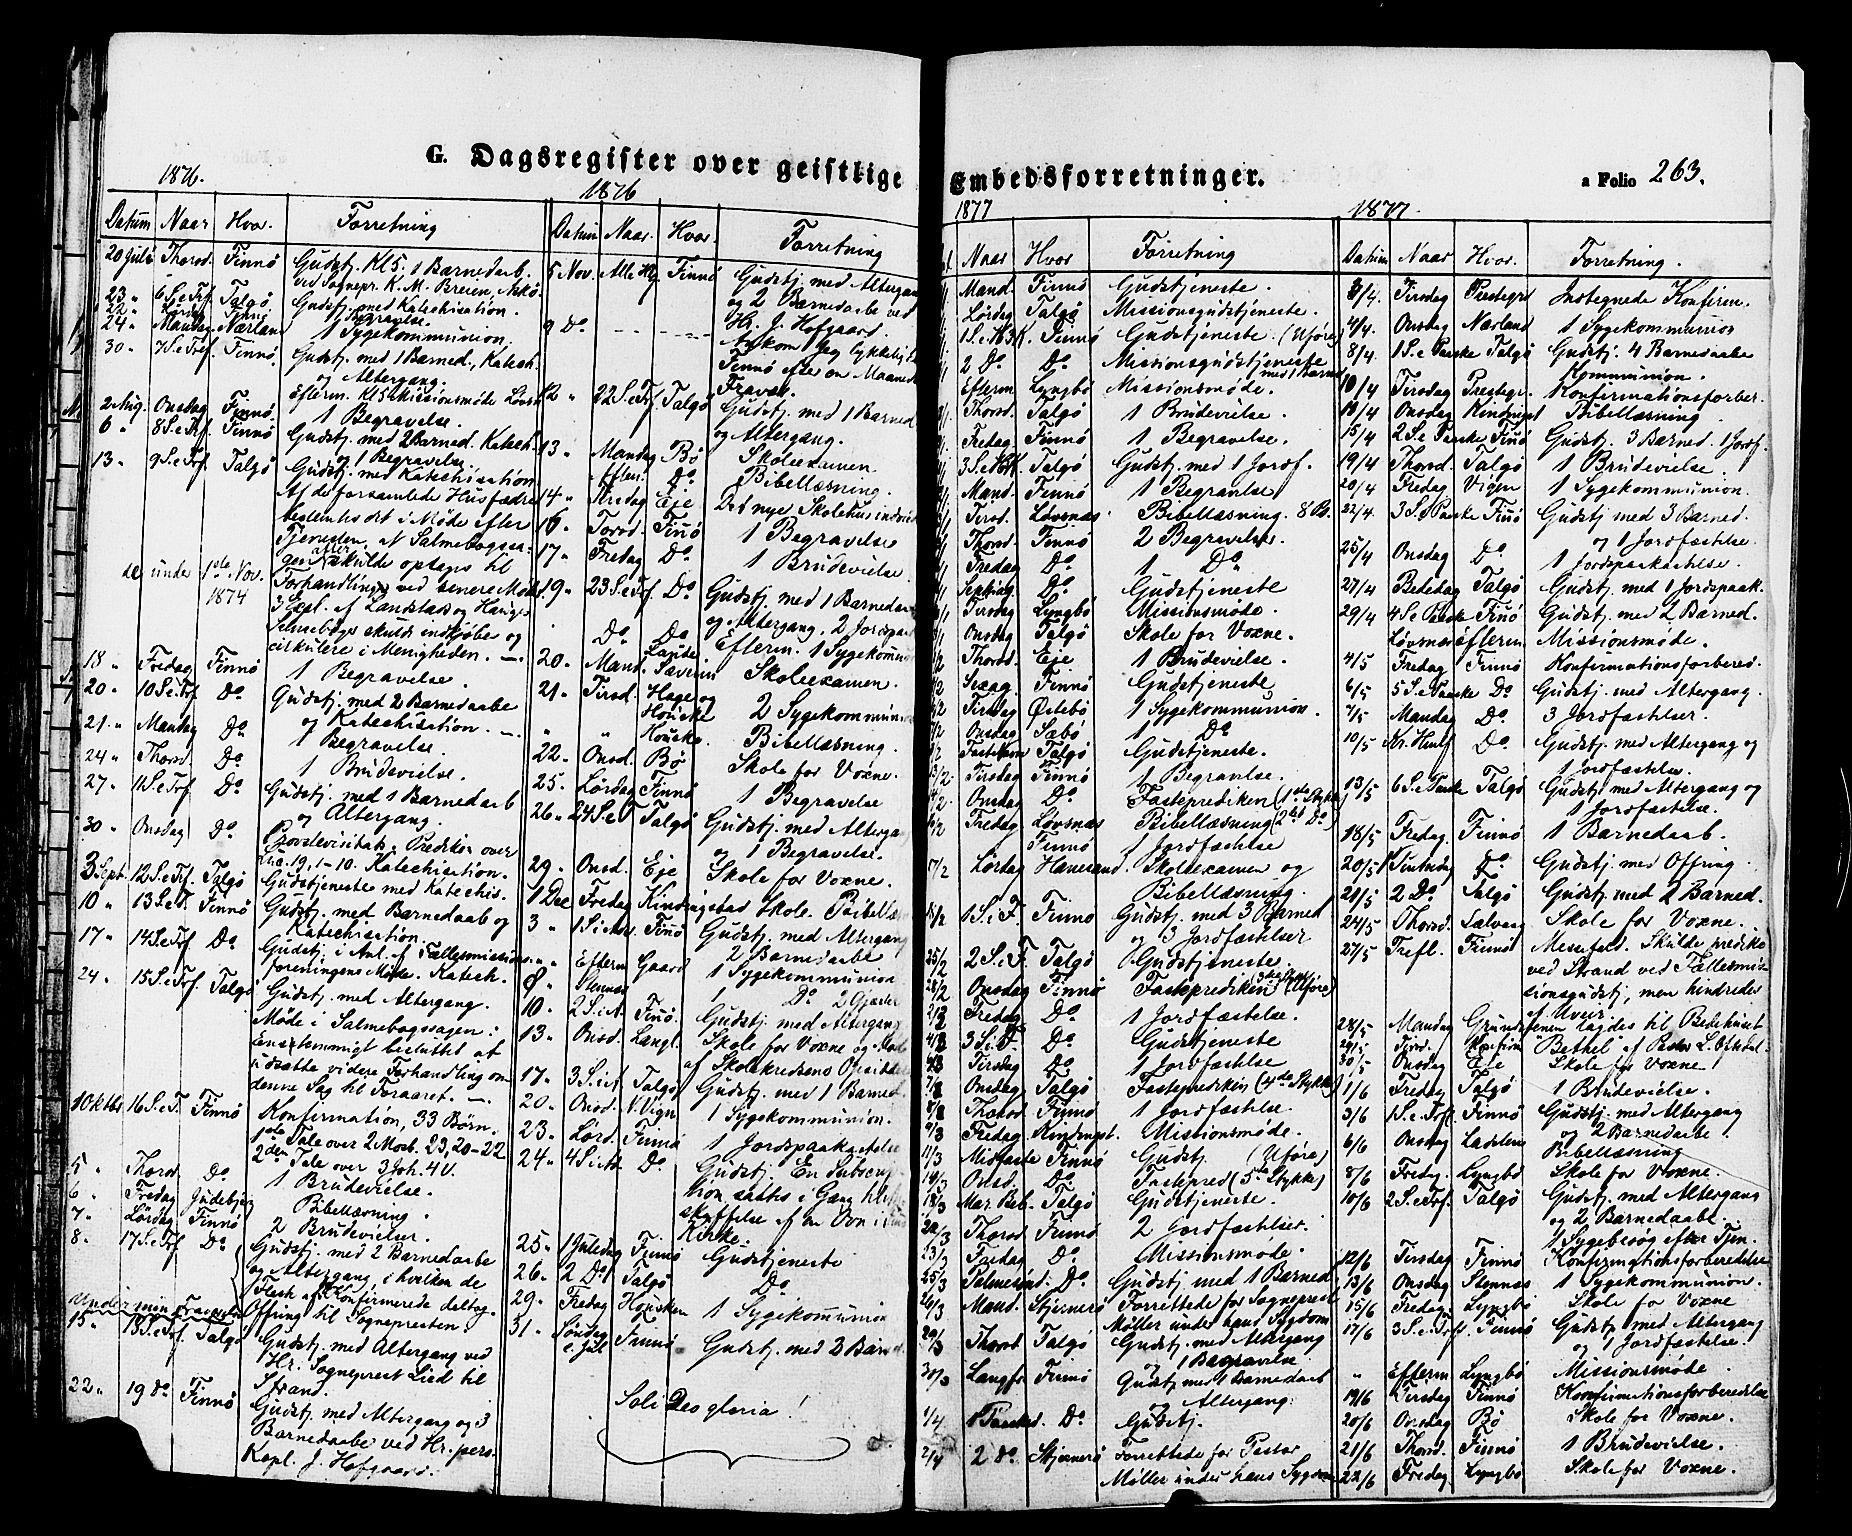 G. Dagsregister over geistlige Embedsforretninger.
a Folio 263.
1876.
Datum Naar Hvor. Forretning
20 Juli Thorsd. Finnö Gudstj. Kl 5. 1 Barnedaab.
ved Sognepr. K. M. Breien,
23 " 6 S.e.Trf. Talgö Gudstj. med Katechisation.
22 " Lördag Finnö 1 Begravelse.
24 " Mandag Nærlan 1 Sygekommunion.
30 " 7 S.e.Tref. Finnö Gudstj. med 1 Barned., Katech.
og Altergang.
Efterm. Kl 5 Missionsmöde
2 Aug. Onsdag Finnö 1 Begravelse.
6 " 8 S.e.Trf. Finnö Gudstj. med 2 Barned. Katech.
og 1 Begravelse.
13 " 9 S.e.Trf. Talgö Gudstj. med Katechisation
Af de forsamlede Husfædre
bestemtes det i Möde efter
Tjenesten, at Salmebogssa-
gen efter skulde optages til
de under 1ste Nov. Forhandling ved senere Möde.
1874 3 Expl. af Landstads og Hauges
Salmebøger skulde indkjöbes og
cirkulere i Menigheden. —
18 " Fredag Finnö 1 Begravelse.
20 " 10 S.e.Trf. Do. Gudstj. med 2 Barnedaabe
og Katechisation. —
21 " Mandag Do. 1 Begravelse.
24 " Thorsd. Do. 1 Brudevielse.
27 " 11 S.e.Trf. Do. Gudstj. med 1 Barnedaab
og Altergang.
30 " Onsdag Do. Provstevisitats. Prediken over
Luc. 19, 1-10. Katechisation.
3 Sept. 12 S.e.Trf. Talgö Gudstjeneste med Katechis.
10 " 13 S.e.T. Finnö Gudstj. med Barnedaab og
Katechisation.
17 " 14 S.e.Trf. Do. Gudstj. i Anl. af Fællesmissions-
foreningens Möde. Katech.
24 " 15 S.e.Trf. Talgö Gudstj. med Altergang.
Möde i Salmebogssagen:
Eenstemmigt besluttet at
udsætte videre Forhandling om
denne Sag til Foraaret. —
1 Oktbr 16 S.e.T. Finnö Konfirmation, 33 Börn.
1ste Tale over 2 Mosb. 23, 20-22
2den Tale over 3 Joh. 4 V.
5 " Thorsd. Do. 1 Brudevielse.
6 " Fredag Judebjerg Bibellæsning.
7 " Lördag Finnö 2 Brudevielser.
8 " 17 S.e.Trf. Do. Gudstj. med 2 Barnedaabe
og Altergang, i hvilken de
Flest af Konfirmerede deltog.
Offring til Sognepresten.
Under min Fravær
15 " 18 S.e.Trf. Talgö Gudstj. med Altergang ved
Hr. Sogneprest Lied til
Strand.
22 " 19 do. Finnö Gudstj. med Altergang og 3
Barnedaabe ved Hr. pers.
Kapl. J. Hofgaard.
1876
Datum Naar. Hvor. Forretning
5 Nov. Alle Hlg. Finnö Gudstj. med Altergang
og 2 Barnedaabe ved
Hr. J. Hofgaard.
9 Do. - - - - Ankom jeg lykkelig til
Finnö efter en Maaneds
Fravær.
12 " 22 S.e.Trf. Talgö Gudstj. med 1 Barned
og Altergang.
13 " Mandag Bö Skoleexamen
Efterm. Do. Bibellæsning.
14 " Tirsdag Eje Det nye Skolehus indviet
16 " Torsd. Finnö 1 Begravelse
17 " Fredag Do. 1 Brudevielse
19 " 23 S.e.Trf. Do. Gudstj. med 1 Barnedaab
og Altergang, 2 Jordspaak
" Do. Do. Efterm. 1 Sygekommun
20 " Mand. Sævem Skoleexamen.
21 " Tirsd. Hage og
Houske 2 Sygekommunion
" " Houske Bibellæsning.
22 " Onsd. Bö Skole for Voxne.
25 " Lördag Finnö 1 Begravelse
26 " 24 S.e.T. Talgö Gudstj. med Altergang
og 1 Begravelse.
29 " Onsd. Eje Skole for Voxne.
1 Dec Fredag Kindingstad Skole. Bibellæs
3 " 1 S.i.Adv. Finnö Gudstj. med Altergang
2 Barnedaabe
" " Efterm Gaard 1 Sygekommunion
8 " Stennæs 1 Do. 2 Gjester
10 " 2 S.i.A. Finnö Gudstj. med Altergang
13 " Onsd. Langl. Skole for Voxne og
af Skolekredsens Opsidde
17 " 3 S.i.A. Talgö Gudstj. med 1 Barned
20 " Onsd. V. Vign 1 Sygekommunion.
23 " Lörd. Finnö 1 Jordspaakastelse
24 " 4 S.i.Ad. Do. Gudstj. En Subscrip
tion sattes i Gang til
skaffelse af en Ovn i
Kirke.
25 " 1 Juledag Finnö Gudstjeneste
26 " 2 Do. Talgö Do.
29 " Fredag Housken 1 Sygekommunion
31 " Söndag e. Jul Finnö Gudstj. med 2 Barned
Soli Deo gloria!
1877
Naar Hvor Forretning
Mand. Finnö Gudstjeneste.
Lördag Talgö Missionsgudstjeneste.
1 S.e.H3K. Finnö Gudstjeneste. (Uföre)
2 Do. Do. Missionsgudstjeneste
med 1 Barned
Efterm Lyngbö Missionsmöde.
Thorsd. Talgö 1 Brudevielse.
Fredag Finnö 1 Begravelse.
3 S.e.H3K. Talgö Gudstj. med 1 Jordf.
Mand. Finnö 1 Begravelse
Tirsd. Lovsnæs Bibellæsning.
Thorsd. Finnö 2 Begravelse.
Fredag Do. 1 Do.
Septuag. Do. Gudstjeneste
Tirsdag Lyngbö Missionsmöde.
Onsdag Talgö Skole for Voxne.
Thorsd. Eje 1 Brudevielse.
Sexag. Finnö Gudstjeneste
Tirsdag Östebö 1 Sygekommunion.
Onsdag Sæbö 1 Do.
Fastelavn Talgö Gudstjeneste.
13/2 Tirsdag Finnö 1 Begravelse.
Onsdag Do. Fasteprediken (1ste Stykke)
Fredag Lovsnæs Bibellæsning (2det Do.)
Finnö 1 Jordfæstelse
17/2 Lördag Hanesand. Skoleexamen og
Bibellæsning.
18/2 1 S.i.F. Finnö Gudstj. med 3 Barned
og 3 Jordfæstelser
25/2 2 S.i.F. Talgö Gudstjeneste.
28/2 Onsdag Finnö Fasteprediken (Uföre)
2/3 Fredag Do. 1 Jordfæstelse.
4/3 3 S.i.F. Do. Gudstjeneste
Tirsdag Do. 1 Jordfæstelse
Onsdag Talgö Fasteprediken (4de Stykke)
Thorsd Finnö 1 Jordfæstelse.
9/3 Fredag Kindingst. Missionsmöde.
11/3 Midfaste Finnö Gudstj. (Uföre)
14/3 Onsd. Do. Fastepred (5te Stykke)
18/3 Mar. Beb. Talgö Gudstjeneste.
22/3 Thorsd Finnö 2 Jordfæstelser.
23/3 Fredag Do. Missionsmöde.
25/3 Palmesönd. Do. Gudstj. med 1 Barned
26/3 Mand. Stjernerö Forrettede for Sogneprest
Möller under hans Sygdom
29/3 Thorsd Talgö Gudstj. med Altergang
og 1 Begravelse.
30/3 Langfr. Finnö Gudstj. med 1 Barnedaab
og Altergang.
1/4 1 Paaskd. Do. Gudstj.
2/4 2 do. Stjernerö Forrettede for Pastor
Möller under hans Sygdom
1877.
Datum Naar Hvor. Forretning.
3/4. Tirsdag Prestegr Indtegnede Konfirm.
4/4. Onsdag Nærland 1 Sygekommunion
8/4. 1 S.e. Paaske Talgö Gudstj. 4 Barnedaabe
Kommunion.
10/4 Tirsdag Prestegr. Konfirmationsforber.
11/4 Onsdag Kindingst Bibellæsning.
15/4 2 S.e. Paaske Finö Gudstj. 3 Barned. 1 Jordf.
19/4 Thorsd. Talgö 1 Brudevielse.
20/4 Fredag Vigen 1 Sygekommunion.
22/4 3 S.e. Paaske Finö Gudstj med 3 Barned.
og 1 Jordfæstelse.
25/4 Onsdag Do. 1 Jordspaakastelse.
27/4 Bededag Talgö Gudstj. med 1 Jordspaak.
29/4 4 S.e. Paaske Finö Gudstj. med 2 Barned.
Lovsnæs Efterm Missionsmöde.
4/5 Fredag Finnö Konfirmationsforbered.
6/5 5 S.e. Paaske Do. Gudstj. med Altergang.
7/5 Mandag Do. 3 Jordfæstelser.
10/5 Kr. Himlf. Do. Gudstj. med Altergang og
1 Jordfæstelse.
13/5 6 S.e. Paaske Talgö Gudstj. med Altergang og
1 Jordfæstelse.
18/5 Fredag Finnö 1 Barnedaab.
20/5 1 Pintsedag Do. Gudstj. med Offring.
21/5 2 Do. Talgö Gudstj. med 2 Barned.
24/5 Thorsd. Salvaag Skole for Voxne.
27/5 Trefl. Finnö Messefald. Skulde predike
ved Strand ved Fællesmis-
sionsgudstj, men hindredes
af Uveir.
28/5 Mandag Grundstenen lagdes til Bedehuset
29/5 Tirsd. "Bethel" af Pastor L. Oftedal.
30/5 Onsdag Eje Skole for Voxne.
1/6 Fredag Talgö 1 Brudevielse.
3/6 1 S.e.Trf. Finnö Gudstj. med Altergang
og 2 Barnedaabe.
6/6 Onsdag Ladstens Bibellæsning
8/6 Fredag Lyngbö Skole for Voxne.
10/6 2 S.e.Tref. Talgö Gudstj. med Altergang
og 2 Barnedaabe.
1 Sygebesög efter Tjen.
12/6 Tirsdag Finnö Konfirmationsforberedelse
13/6 Onsdag Stennæs 1 Sygekommunion.
15/6 Fredag Lyngbö Skole for Voxne
17/6 3 S.e.Trf. Finnö Gudstj. med Altergang
og 1 Jordfæstelse.
" Efterm Lyngbö Missionsmöde
19/6 Tirsdag Finnö Konfirmationsforberedelse
20/6 Onsdag Bö Skole for Voxne.
21/6 Thorsd. Finnö 1 Brudevielse.
22/6 Fredag Lyngbö Skole for Voxne.